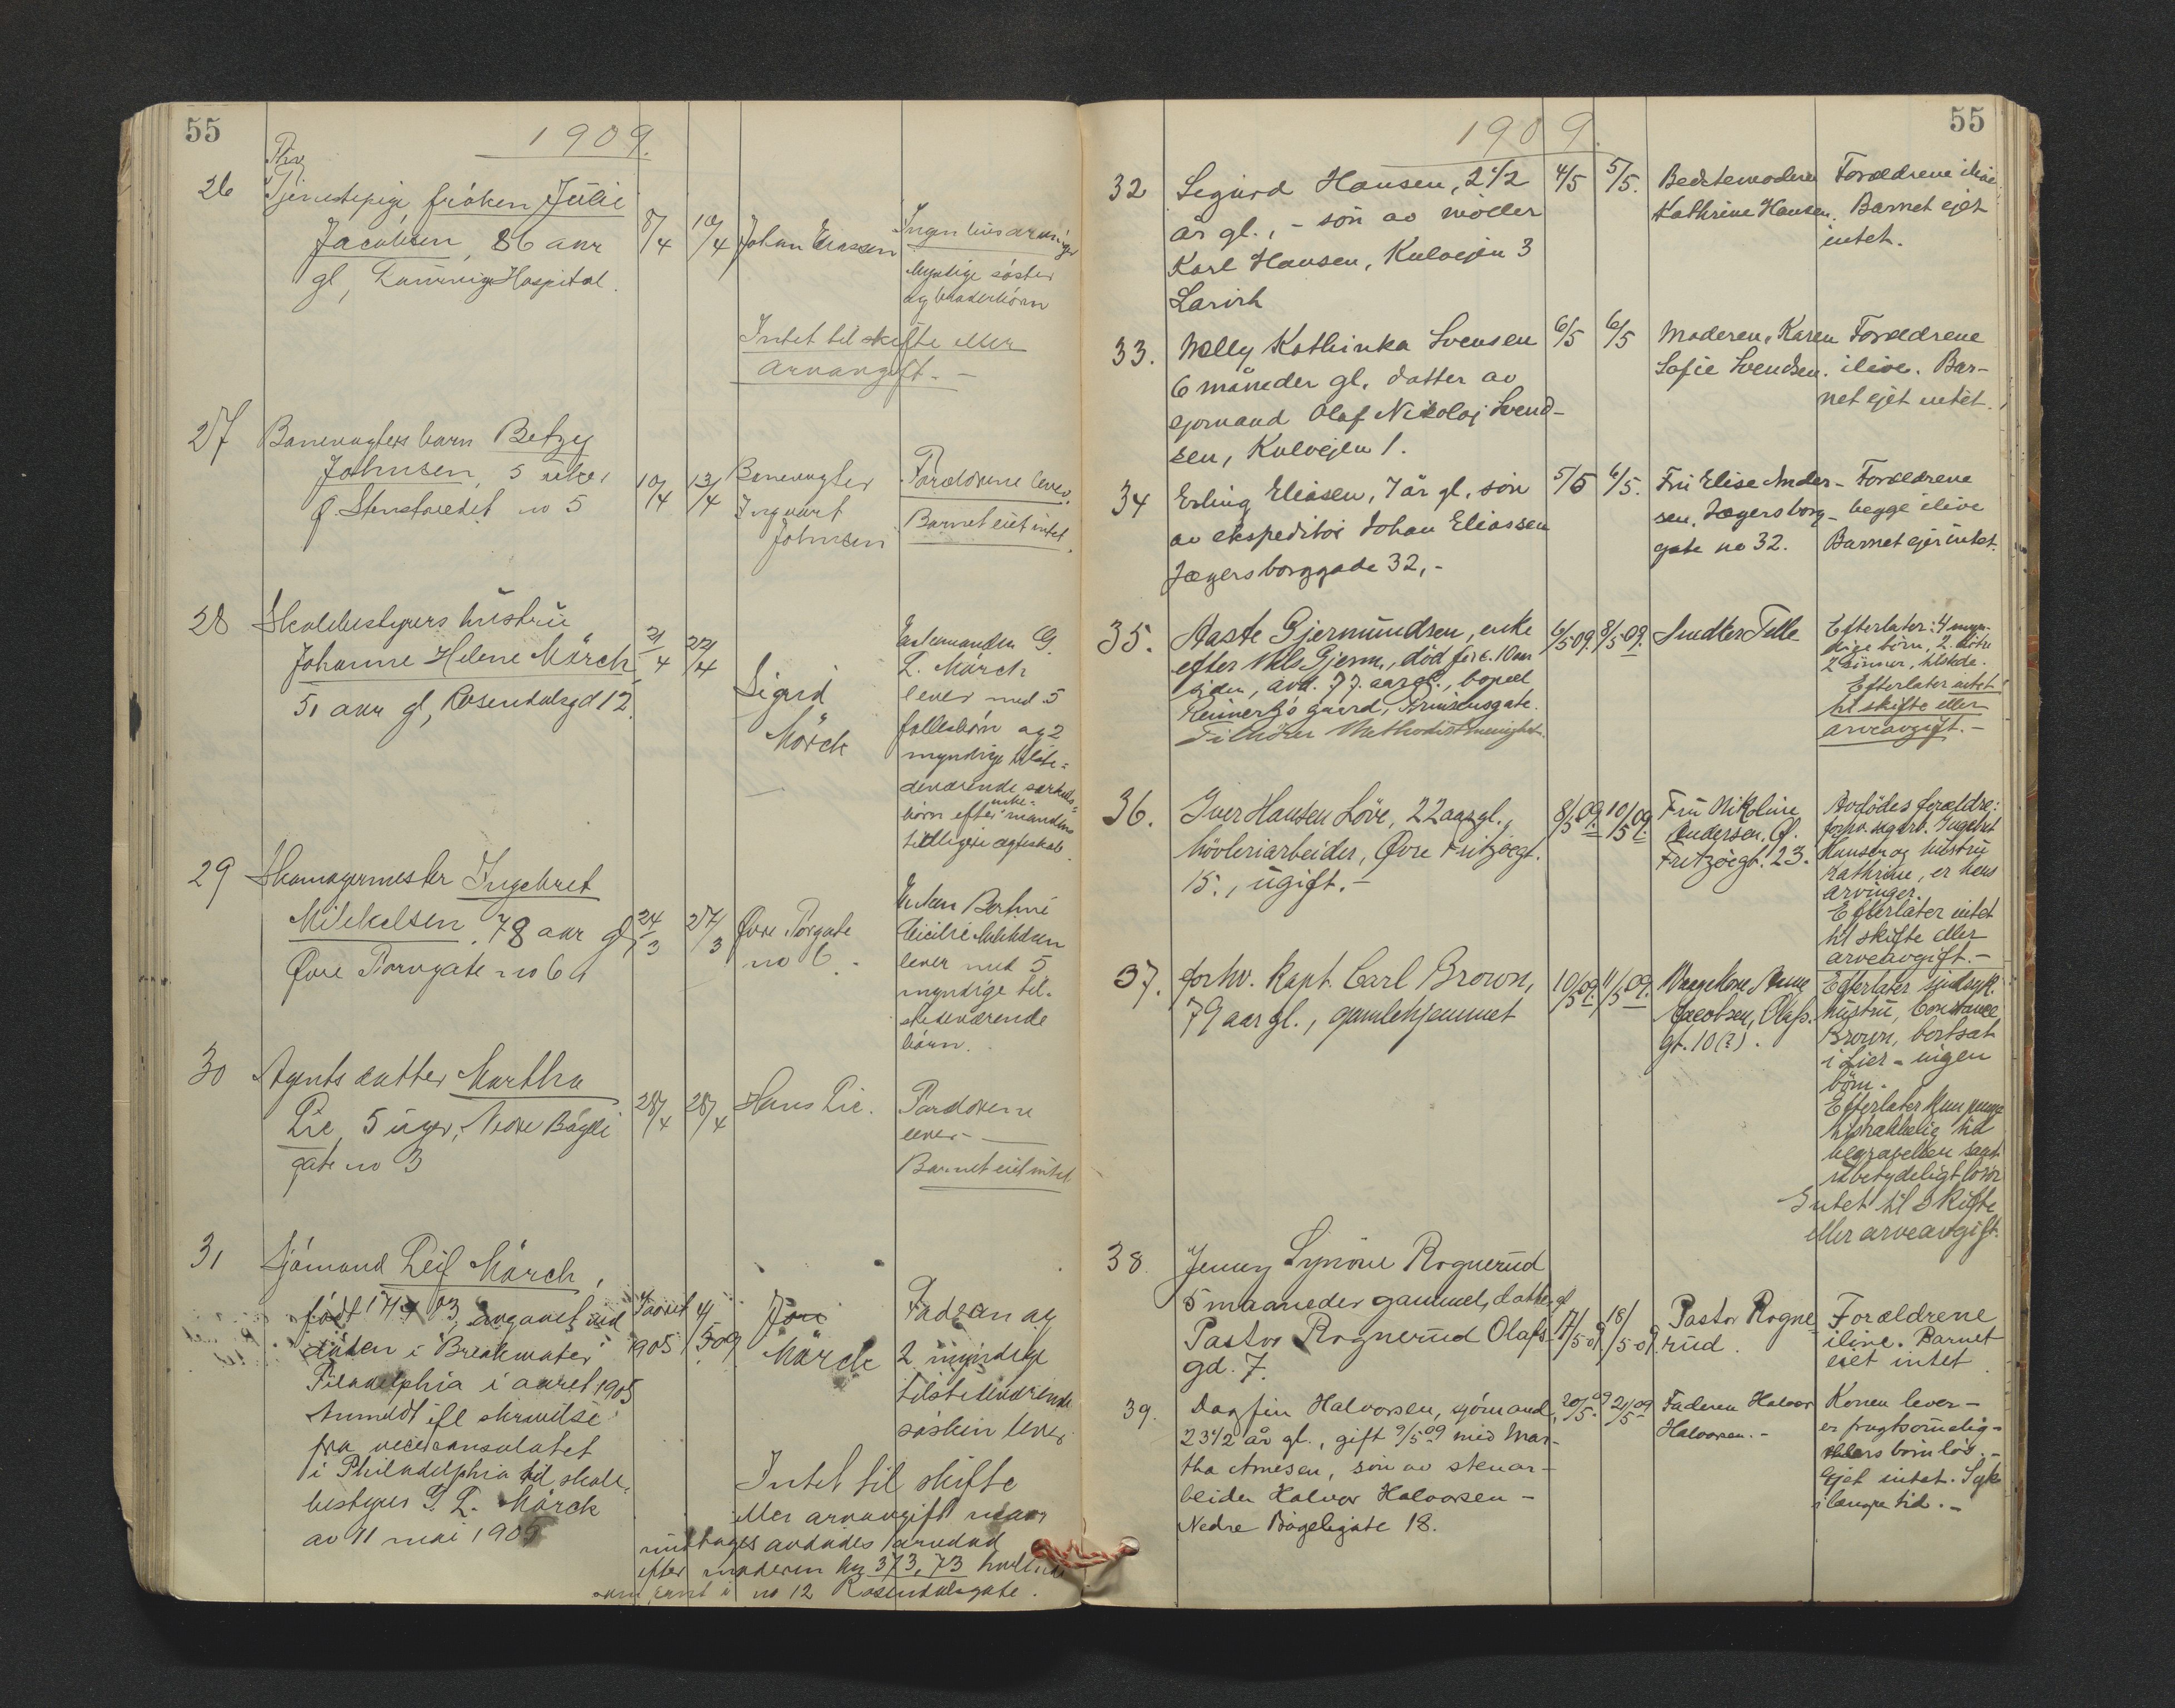 55
1909.
26
Tjenestepige, frøken Julie
Jacobsen, 86 aar
gl, Hospital.
8/4
10/4
Johan
Ingen livsarvinger
myndige søster
og broderbørn
Intet til skifte eller
arvavgift. -
27
Banevogters barn Betzy
Johnsen, 5 uker
Ø. Stenstrædet no 5
10/4
13/4
Banevogter
Ingvart
Johnsen
Forældrene lever.
Barnet eiet intet.
28
Skolebestyrers hustru
Johanne Helene Mörch
51 aar gl, Rosendalsgd 12.
21/4
22/4
Sigrid
Mörch
Enkemanden G.
L. Mörch
lever med 5
fællesbörn og 2
myndige tilste-
deværende særkuls-
börn efter mandens
tidligere ægteskab
29
Skomagermester Ingebret
Mikkelsen, 78 aar gl
Øvre Torvgate no 6
24/3
27/3
Øvre Torvgate
no 6.
Enken
Cicilie Mikkelsen
lever med 5
myndige til-
stedeværende
börn.
30
Agents datter Martha
Lie, 5 uger, Nedre Bögeli
gate no 3
28/4
28/4
Hans Lie.
Forældrene
lever -
Barnet eiet intet
31
Sjömand Leif Mörch,
født 17/4 83, avgaaet ved
döden i Breakwater
Philadelphia i aaret 1905
Anmeldt ifl skrivelse
fra viceconsulatet
i Philadelphia til skole-
bestyrer G L. Mörch
av 11 mai 1905
I aaret
1905
4/5 09
Mörch
Faderen og
2 myndige
tilstedeværende
søsken lever
Intet til skifte
eller arvavgift
undtages avdödes arvelod
efter moderen kr 373,73
no 12 Rosendalsgate.
55
1909.
32
Sigurd Hansen, 2 1/2
år gl., - sön av möller
Karl Hansen, Kulvejen 3
Larvik
4/5
5/5.
Bedstemoderen
Kathrine Hansen.
Forældrene ilive
Barnet ejet
intet.
33.
Nelly Kathinka Svensen
6 måneder gl. datter av
sjömand Olaf Nikolaj Svend-
sen, Kulvejen 1.
6/5
6/5
Moderen, Karen
Sofie Svendsen.
Forældrene
ilive. Bar-
net ejet intet.
34
Erling Eliasen, 7 år gl. sön
av ekspeditör Johan Eliassen
Jægersborggade 32, -
5/5
6/5.
Fru Elise Ander-
sen. Jægersborg-
gate no 32.
Forældrene
begge ilive
Barnet ejer intet.
35.
Aaste Gjermundsen, enke
efter Nils Gjerm., död for c. 10 aar
siden, avd. 77 aar gl., bopæl
gaard, Prinsensgate.
Tilhörer Methodistmenighet.
6/5 09.
8/5 09.
Smedker Telle
Efterlater: 4 myn-
dige börn, 2 dötre
2 sönner, tilstede.
Efterlater intet
til skifte eller
arveavgift. -
36.
Iver Hansen Löve, 22 aar gl.,
hövleriarbeider, Øvre Fritzöegt.
15., ugift. -
8/5 09.
10/5 09.
Fru Nikoline
Andersen, Ø.
Fritzöegt. 23.
Avdödes forældre:
forhv. sagarb. Ingebret
Hansen og hustru
Kathrine, er hans
arvinger.
Efterlater intet
til skifte eller
arveavgift. -
37.
forhv. Kapt. Carl Brown,
79 aar gl., gamlehjemmet
10/5 09.
11/5 09.
Vaagekone Anne
Jacobsen, Olafs.
gt. 10(?).
Efterlater sindssyk
hustru, Constance
Brown, bortsat
i Lier - ingen
börn.
Efterlater kun penge
tilstrækkelig til
begravelsen samt
ubetydeligt lösöre
Intet til skifte
eller arveavgift.
38
Jenny Synöve Rognerud
5 maaneder gammel, datter af
Pastor Rognerud Olafs
gd. 7.
17/5 09
18/5 09.
Pastor Rogne
rud.
Forældrene
ilive. Barnet
eiet intet.
39.
Dagfin Halvorsen, sjömand,
23 1/2 år gl., gift 9/5 09 med Mar-
tha Arnesen, sön av stenar-
beider Halvor Halvorsen -
Nedre Bögeligate 18.
20/5 09
21/5 09
Faderen Halvor
Halvorsen. -
Konen lever -
er frugtsommelig -
ellers barnlös. -
Ejet intet. Syk
i længre tid. -